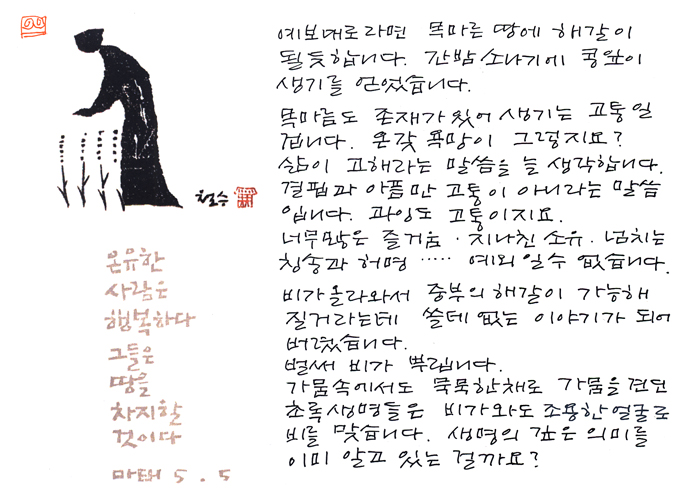 예보대로라면 목마른 땅에 해갈이
될듯합니다. 간밤 소나기에 콩잎이
생기를 얻었습니다.
목마름도 존재가 있어 생기는 고통일
겁니다. 온갖 욕망이 그렇지요?
삶이 고해라는 말씀을 늘 생각합니다.
결핍과 아픔만 고통이 아니라는 말씀
입니다. 과잉도 고통이지요.
너무많은 즐거움 · 지나친 소유 · 넘치는
칭송과 허명 ····· 예외일수 없습니다.
비가올라와서 중부의 해갈이 가능해
질거라는데 쓸데 없는 이야기가 되어
버렸습니다.
벌써 비가 뿌립니다.
가뭄속에서도 묵묵한채로 가뭄을 견딘
초록생명들은 비가와도 조용한 얼굴로
비를 맞습니다. 생명의 깊은 의미를
이미 알고 있는 걸까요?
철수
온유한
사람은
행복하다
그들은
땅을
차지할
것이다
마태 5.5